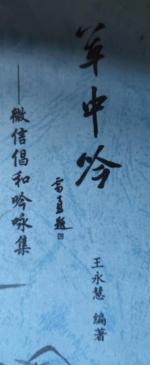 草中吟
——微信倡和吟咏集
雷直题
王永慧 编著